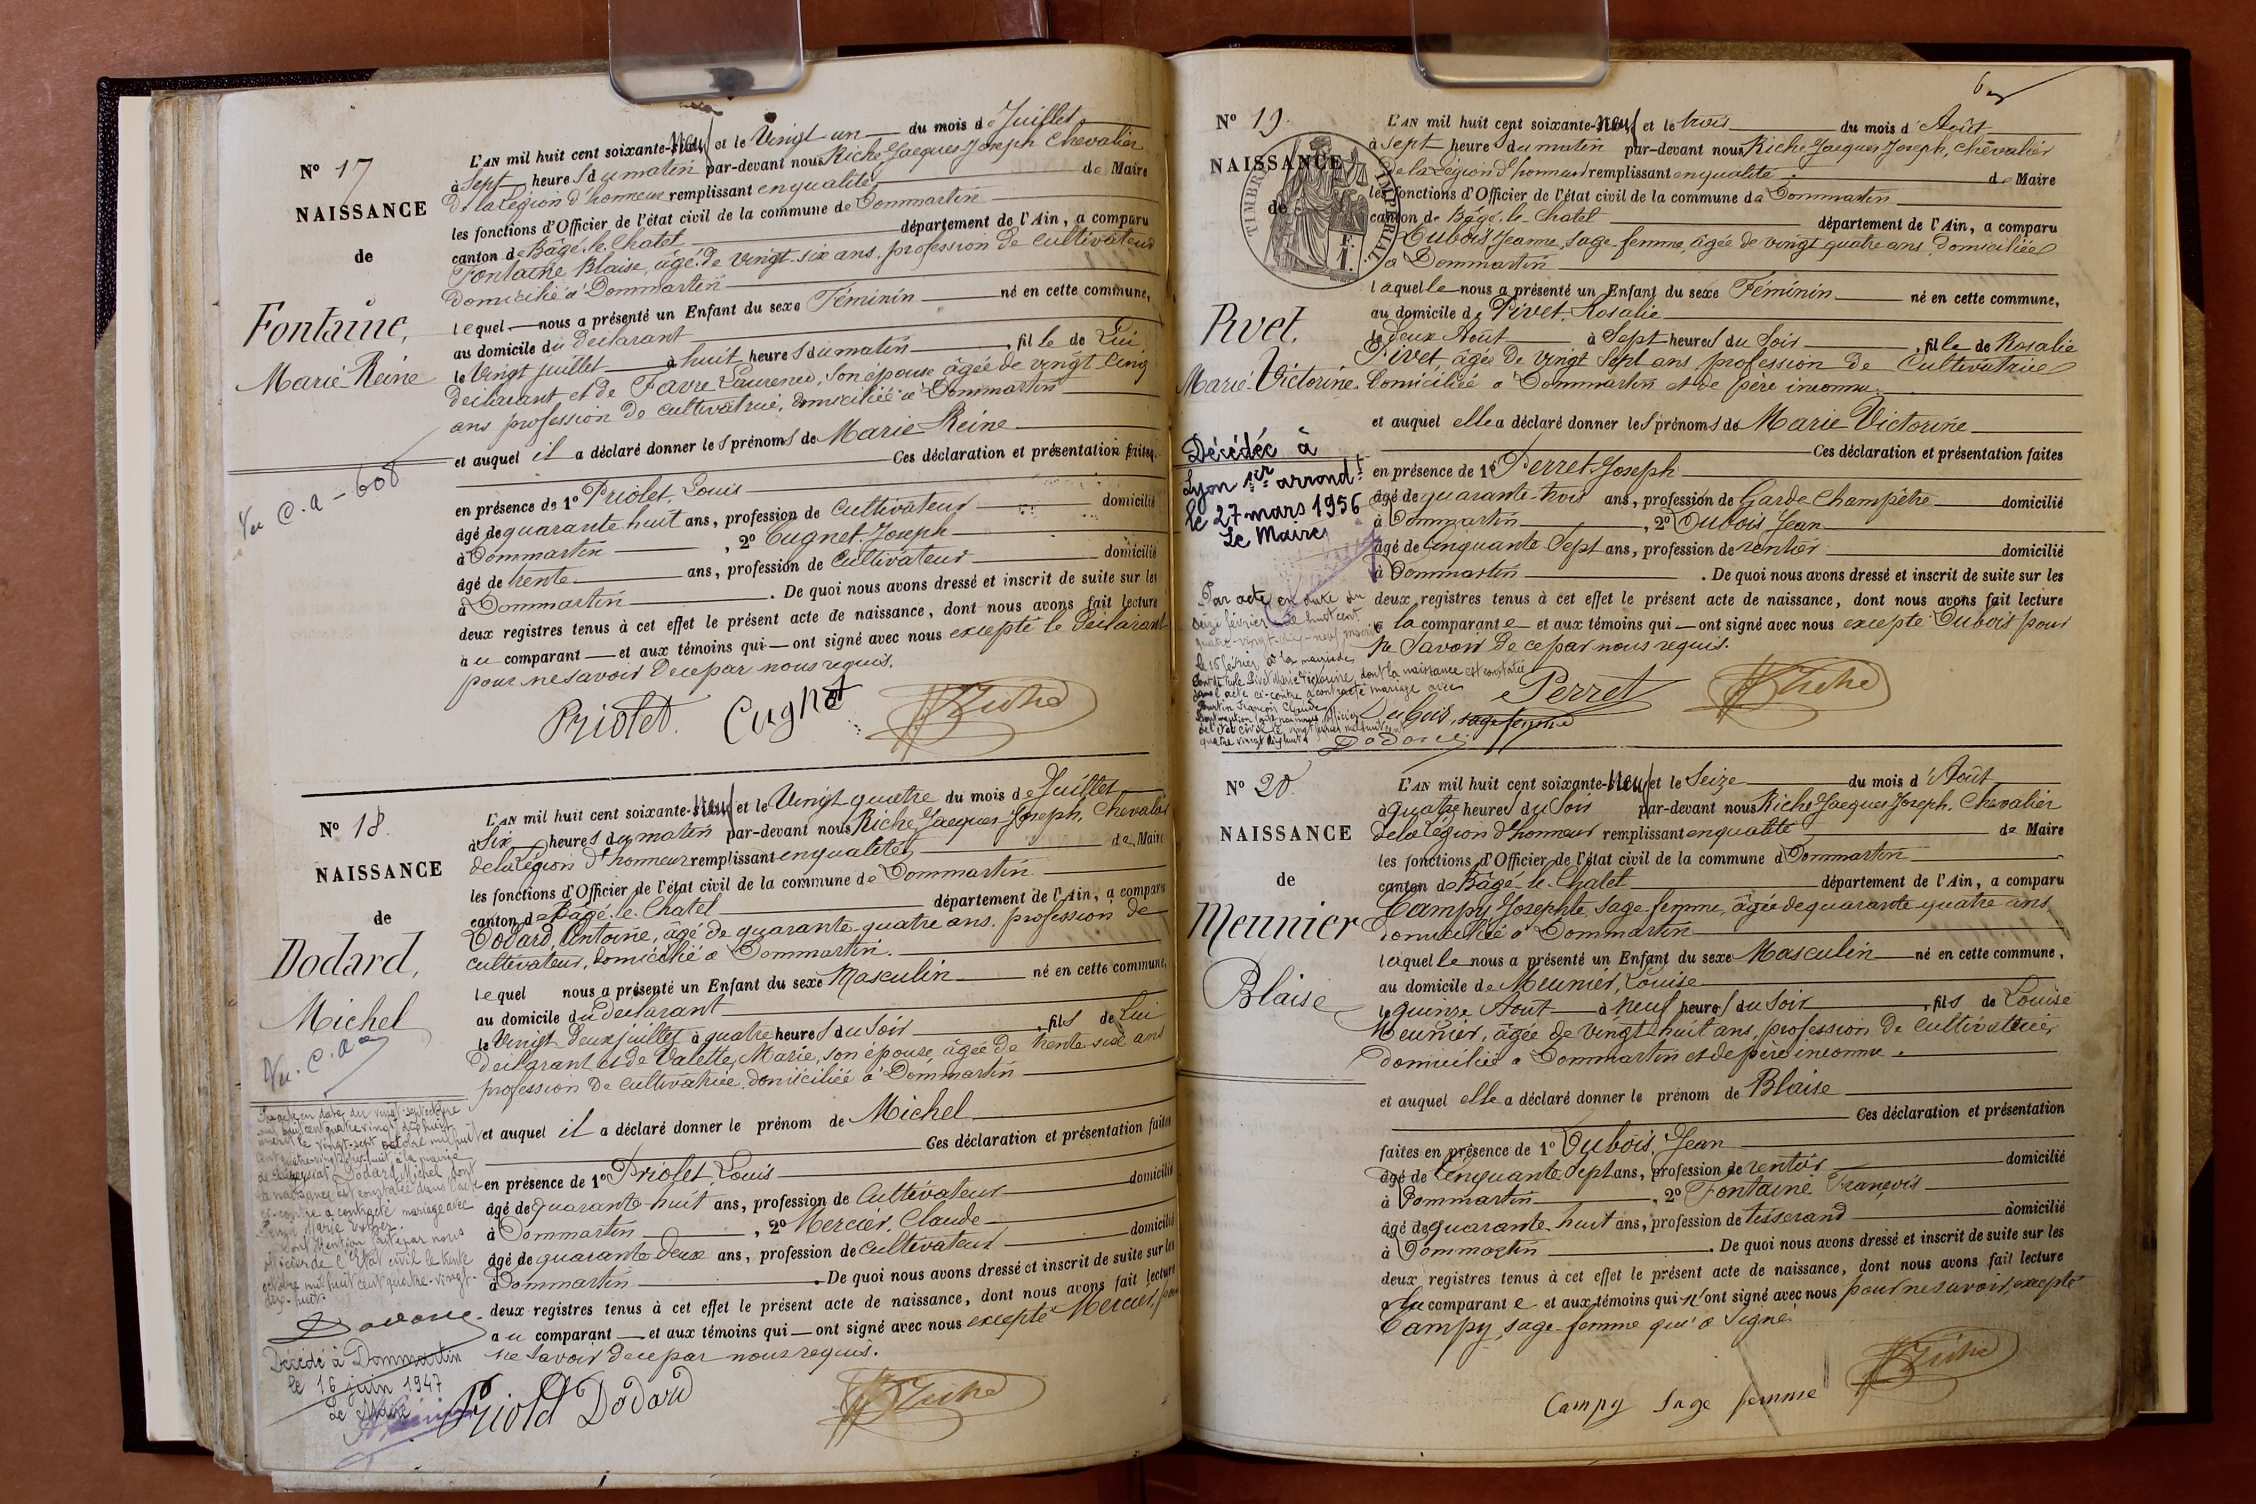 N° 17
NAISSANCE
de
Fontaine,
Marie Reine
Vu C. a - 608
L'AN mil huit cent soixante-neuf et le Vingt un du mois de Juillet
à Sept heures du matin par-devant nous Riche Jacques Joseph Chevalier
de la Légion d'honneur remplissant en qualité de Maire
les fonctions d'Officier de l'état civil de la commune de Dommartin
canton de Bâgé-le-Chatel département de l'Ain, a comparu
Fontaine Blaise, âgé de vingt-six ans, profession de cultivateur
domicilié à Dommartin
lequel nous a présenté un Enfant du sexe Féminin né en cette commune,
au domicile du déclarant
le Vingt juillet à huit heures du matin, fille de Lui
déclarant et de Favre Laurence, son épouse âgée de vingt cinq
ans profession de cultivatrice, domiciliée à Dommartin
et auquel il a déclaré donner les prénoms de Marie Reine
Ces déclaration et présentation faites
en présence de 1° Priolet, Louis
âgé de quarante huit ans, profession de cultivateur domicilié
à Dommartin, 2° Cugnet Joseph
âgé de trente ans, profession de cultivateur domicilié
à Dommartin. De quoi nous avons dressé et inscrit de suite sur les
deux registres tenus à cet effet le présent acte de naissance, dont nous avons fait lecture
au comparant et aux témoins qui ont signé avec nous excepté le déclarant
pour ne savoir de ce par nous requis.
Priolet. Cugnet Riche
N° 18
NAISSANCE
de
Dodard,
Michel
Vu. C. a
L'AN mil huit cent soixante-neuf et le Vingt quatre du mois de Juillet
à Six heures du matin par-devant nous Riche Jacques Joseph, Chevalier
de la Légion d'honneur remplissant en qualité de Maire
les fonctions d'Officier de l'état civil de la commune de Dommartin
canton de Bâgé-le-Chatel département de l'Ain, a comparu
Dodard, Antoine, âgé de quarante quatre ans, profession de
cultivateur, domicilié à Dommartin.
lequel nous a présenté un Enfant du sexe Masculin né en cette commune,
au domicile du déclarant
le Vingt deux juillet à quatre heures du Soir, fils de Lui
déclarant et de Valette, Marie, son épouse, âgée de trente six ans
profession de cultivatrice, domiciliée à Dommartin
et auquel il a déclaré donner le prénom de Michel
Ces déclaration et présentation faites
en présence de 1° Priolet, Louis
âgé de quarante-huit ans, profession de cultivateur domicilié
à Dommartin, 2° Mercier, Claude
âgé de quarante deux ans, profession de cultivateur domicilié
à Dommartin. De quoi nous avons dressé et inscrit de suite sur les
deux registres tenus à cet effet le présent acte de naissance, dont nous avons fait lecture
au comparant et aux témoins qui ont signé avec nous excepté Mercier, pour
ne savoir de ce par nous requis.
Par acte en date du vingt-sept octobre
mil huit cent quatre vingt dix huit
inscrit le vingt-sept octobre mil huit
cent quatre vingt dix-huit à la mairie
Dodard Michel, dont
la naissance est constatée dans l'acte
ci-contre a contracté mariage avec
Marie
dont mention faite par nous
officier de l'Etat civil le trente
octobre mil huit cent quatre-vingt-
dix-huit.
Décédé à Dommartin
le 16 juin 1947
Le Maire
Priolet Dodard Riche
N° 19.
NAISSANCE
de
TIMBRE IMPÉRIAL
Pivet,
Marie Victorine
Décédée à
Lyon 1er arrondt
le 27 mars 1956
Le Maire,
L'AN mil huit cent soixante-neuf et le trois du mois d'Août
à Sept heures du matin par-devant nous Riche Jacques Joseph, Chevalier
de la Légion d'honneur remplissant en qualité de Maire
les fonctions d'Officier de l'état civil de la commune de Dommartin
canton de Bâgé-le-Chatel département de l'Ain, a comparu
Dubois Jeanne, sage-femme, âgée de vingt quatre ans, domiciliée
à Dommartin
laquelle nous a présenté un Enfant du sexe Féminin né en cette commune,
au domicile de Pivet, Rosalie
le deux Août à Sept heures du Soir, fille de Rosalie
Pivet, âgée de vingt sept ans, profession de cultivatrice
domiciliée à Dommartin et de père inconnu
et auquel elle a déclaré donner les prénoms de Marie Victorine
Ces déclaration et présentation faites
en présence de 1° Perret Joseph
âgé de quarante-trois ans, profession de Garde Champêtre domicilié
à Dommartin, 2° Dubois Jean
âgé de cinquante Sept ans, profession de rentier domicilié
à Dommartin. De quoi nous avons dressé et inscrit de suite sur les
deux registres tenus à cet effet le présent acte de naissance, dont nous avons fait lecture
à la comparante et aux témoins qui ont signé avec nous excepté Dubois pour
ne savoir de ce par nous requis.
Par acte en date du
seize février mil huit cent
quatre-vingt-dix-neuf inscrit
le 16 février à la mairie de
Pivet Marie Victorine, dont la naissance est constatée
dans l'acte ci-contre a contracté mariage avec
François Claude
Perret Riche
Dubois, sage femme
N° 20.
NAISSANCE
de
Meunier
Blaise
L'AN mil huit cent soixante-neuf et le Seize du mois d'Août
à quatre heures du Soir par-devant nous Riche Jacques Joseph, Chevalier
de la Légion d'honneur remplissant en qualité de Maire
les fonctions d'Officier de l'état civil de la commune de Dommartin
canton de Bâgé-le-Chatel département de l'Ain, a comparu
Campy, Josephte, sage-femme, âgée de quarante quatre ans,
domiciliée à Dommartin
laquelle nous a présenté un Enfant du sexe Masculin né en cette commune,
au domicile de Meunier, Louise
le quinze Août à neuf heures du Soir, fils de Louise
Meunier, âgée de vingt-huit ans, profession de cultivatrice,
domiciliée à Dommartin et de père inconnu.
et auquel elle a déclaré donner le prénom de Blaise
Ces déclaration et présentation
faites en présence de 1° Dubois, Jean
âgé de cinquante Sept ans, profession de rentier domicilié
à Dommartin, 2° Fontaine François
âgé de quarante-huit ans, profession de tisserand domicilié
à Dommartin. De quoi nous avons dressé et inscrit de suite sur les
deux registres tenus à cet effet le présent acte de naissance, dont nous avons fait lecture
à la comparante et aux témoins qui n'ont signé avec nous pour ne savoir, excepté
Campy, sage-femme qui a signé
Riche
Campy Sage femme